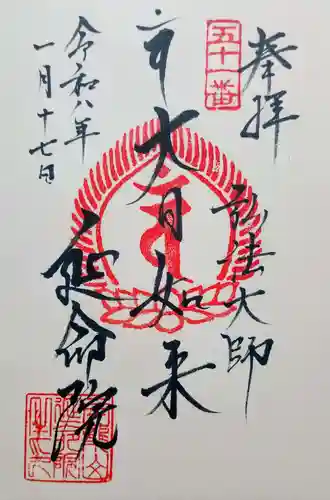 奉拝
五十一番
弘法大師
大日如来
延命院
令和八年
一月十七日